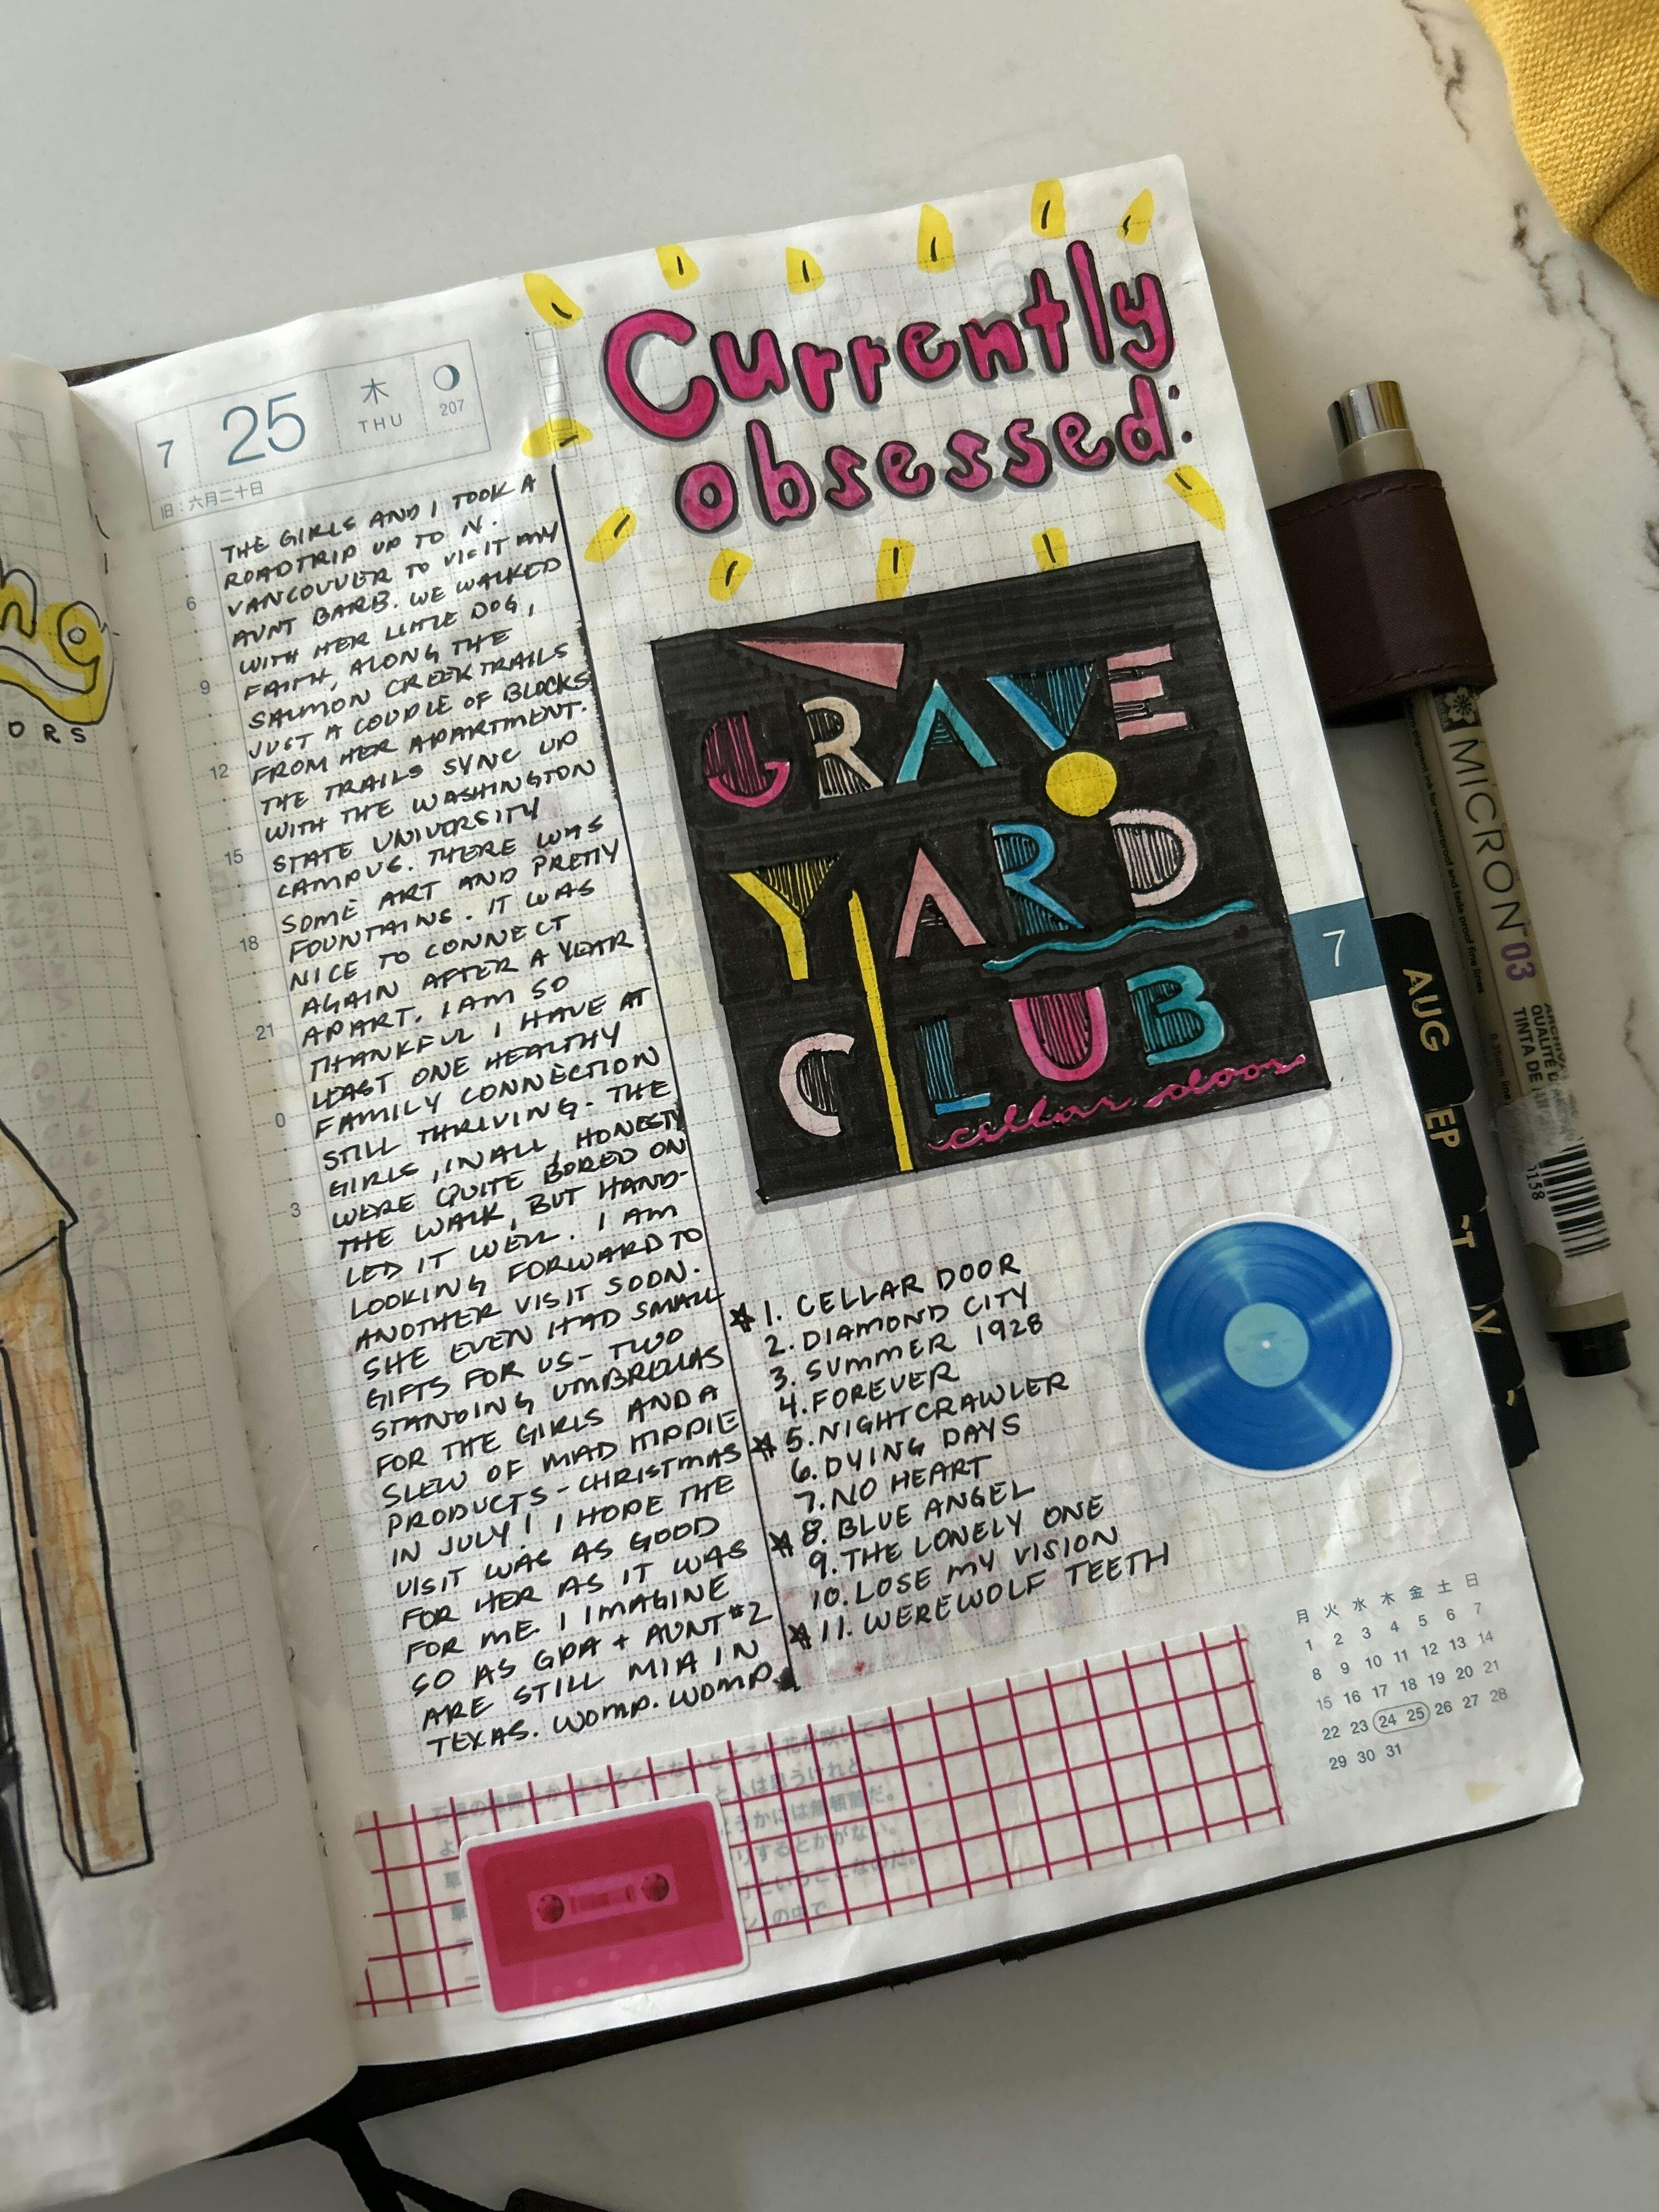 ng
ORS
7
25
木
THU
207
旧：六月二十日
6
9
12
15
18
21
0
3
THE GIRLS AND I TOOK A
ROADTRIP UP TO N.
VANCOUVER TO VISIT MY
AUNT BARB. WE WALKED
WITH HER LITTLE DOG,
FAITH, ALONG THE
SALMON CREEK TRAILS
JUST A COUPLE OF BLOCKS
FROM HER APARTMENT.
THE TRAILS SYNC UP
WITH THE WASHINGTON
STATE UNIVERSITY
CAMPUS. THERE WAS
SOME ART AND PRETTY
FOUNTAINS. IT WAS
NICE TO CONNECT
AGAIN AFTER A YEAR
APART. I AM SO
THANKFUL I HAVE AT
LEAST ONE HEALTHY
FAMILY CONNECTION
STILL THRIVING. THE
GIRLS, IN ALL, HONESTY
WERE QUITE BORED ON
THE WALK, BUT HAND-
LED IT WELL. I AM
LOOKING FORWARD TO
ANOTHER VISIT SOON.
SHE EVEN HAD SMALL
GIFTS FOR US- TWO
STANDING UMBRELLAS
FOR THE GIRLS AND A
SLEW OF MAD HIPPIE
PRODUCTS - CHRISTMAS
IN JULY! I HOPE THE
VISIT WAS AS GOOD
FOR HER AS IT WAS
FOR ME. I IMAGINE
SO AS GPA + AUNT #2
ARE STILL MIA IN
TEXAS. WOMP. WOMP.
Currently
obsessed:
GRAVE
YARD
CLUB
cellar door
1. CELLAR DOOR
2. DIAMOND CITY
3. SUMMER 1928
4. FOREVER
5. NIGHTCRAWLER
6. DYING DAYS
7. NO HEART
8. BLUE ANGEL
9. THE LONELY ONE
10. LOSE MY VISION
11. WEREWOLF TEETH
月 火 水 木 金 土 日
1 2 3 4 5 6 7
8 9 10 11 12 13 14
15 16 17 18 19 20 21
22 23 24 25 26 27 28
29 30 31
7
AUG
EP
T
V
MICRON™ 03
1158